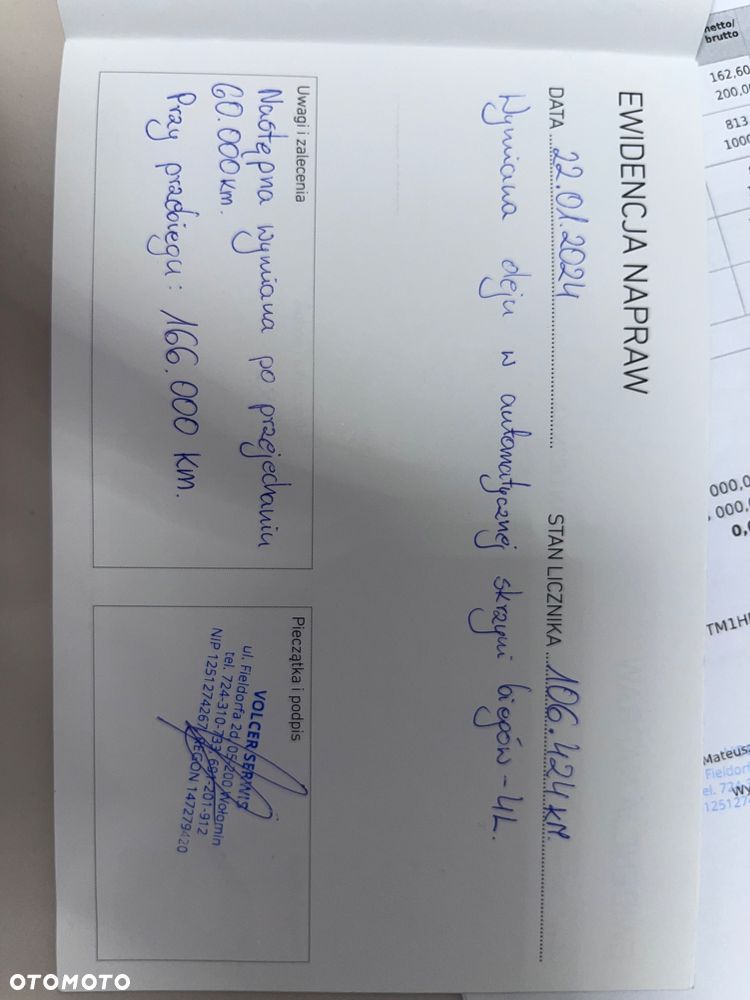 EWIDENCJA NAPRAW
DATA 22.01.2024 STAN LICZNIKA 106.424 KM.
Wymiana oleju w automatycznej skrzyni biegów - 4L.
Uwagi i zalecenia
Następna wymiana po przejechaniu
60.000 km.
Przy przebiegu: 166.000 km.
Pieczątka i podpis
VOLCER SERWIS
ul. Fieldorfa 2d, 05-200 Wołomin
tel. 724-310-733, 691-201-912
NIP 1251274267, REGON 147279420
netto/
brutto
162,60
200,0
813
1000
000,0
000,
0,
TM1H
Mateusz
Fieldorf
el. 724
Wy
12512
OTOMOTO